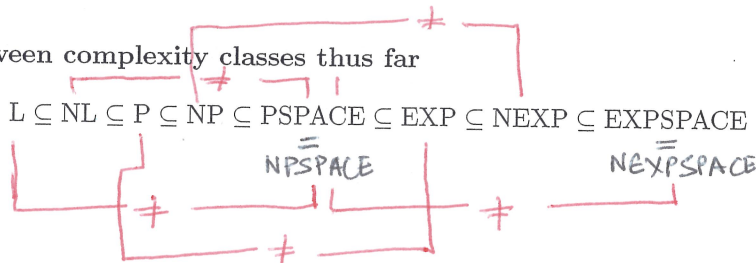 ≠
ween complexity classes thus far
≠
L ⊆ NL ⊆ P ⊆ NP ⊆ PSPACE ⊆ EXP ⊆ NEXP ⊆ EXPSPACE
= =
NPSPACE NEXPSPACE
≠ ≠
≠